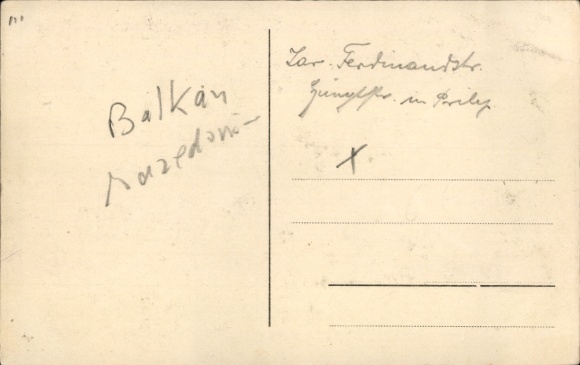 Balkan
Mazedoni-
Zar. Ferdinandstr.
Hauptstr. in Prilep
X